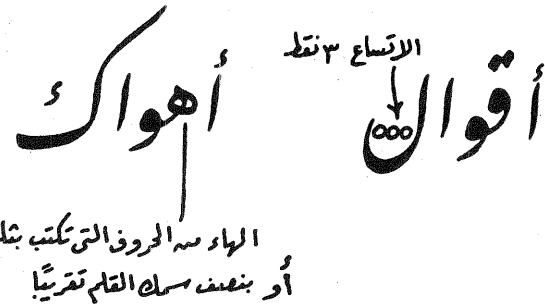 الاتساع ٣ نقط
أقوال
أهواك
الهاء من الحروف التى تكتب
أو بنصف سمك القلم تقريبًا